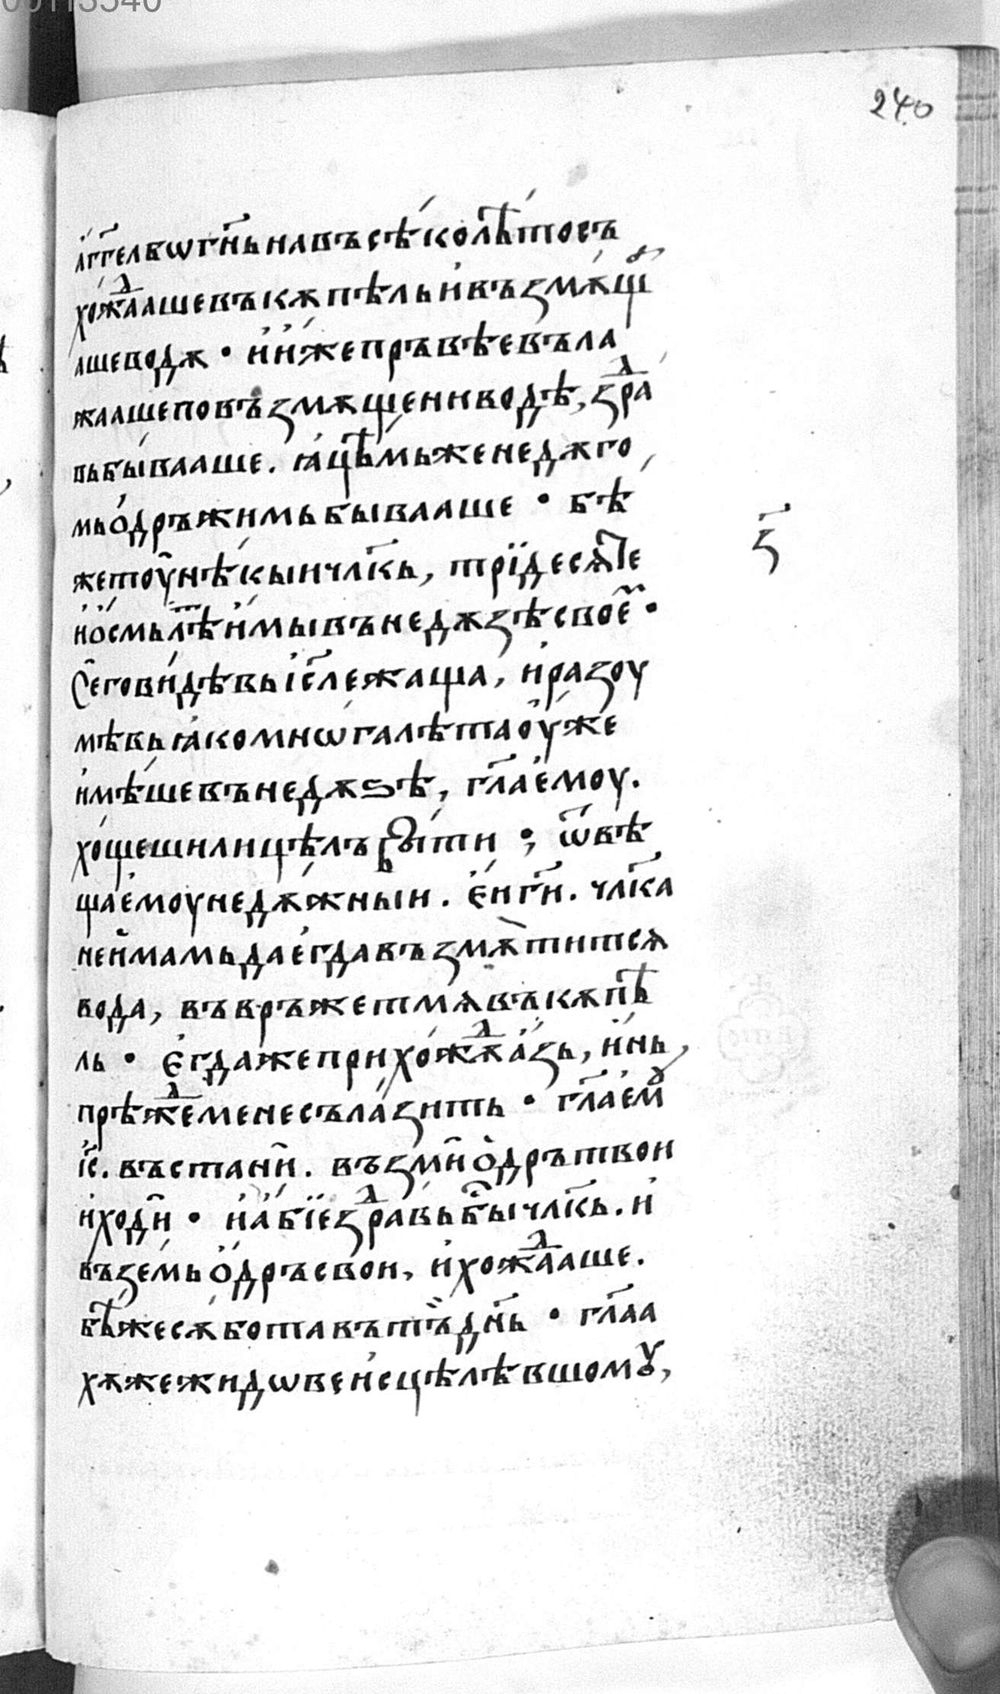 00113340
240
аг҃гелъбѡгн҃ьнавъсѣ́колѣ́товъ
хожⷣаашевъкѫпѣльи҆възмѫщꙋ
ашеводѫ · и҆и҆́жепръвѣевъла
жаашеповъзмѫщениводѣ, зⷣра
въбы́вааше. ꙗ҆цѣ́мьженедѫго
мьо҆дръжи́мьбывааше · бѣ
жетоу҆нѣ́кыичл҃къ, трїдесѧте
ио҆смьлѣⷮи҆мывънедѫзѣсвоеⷨ ·
ꙃ҃
Сеговидѣвыі҆с҃лежаща, и҆разоу
мѣвьꙗ҆комнѡгалѣтаоу҆́же
и҆мѣ́шевънедѫѕѣ, гл҃ае҆моу.
хо́щешилицѣ́лъбы́ти ; ѿвѣ
щае҆моунедѫ́жныи. е҆иг҃и. чл҃ка
неи҆мамьдае҆гдавъзмѫтитсѧ
вода, въвръжетмѧвъкѫпѣ
ль · е҆гдажеприхожⷣѫа҆зь, и҆нь
прѣжⷣеменесъла́зить · гл҃ае҆мꙋ
і҆с҃. въстани҆. възмио҆дрътвои
и҆ходи҆ · и҆а҆бїезⷣравьбы́чл҃къ. и҆
въземьо҆дръсвои, и҆хожⷣааше.
бѣ́жесѫботавътъдн҃ь · гл҃аа
хѫжежидѡвеи҆сцѣлѣвшомꙋ,